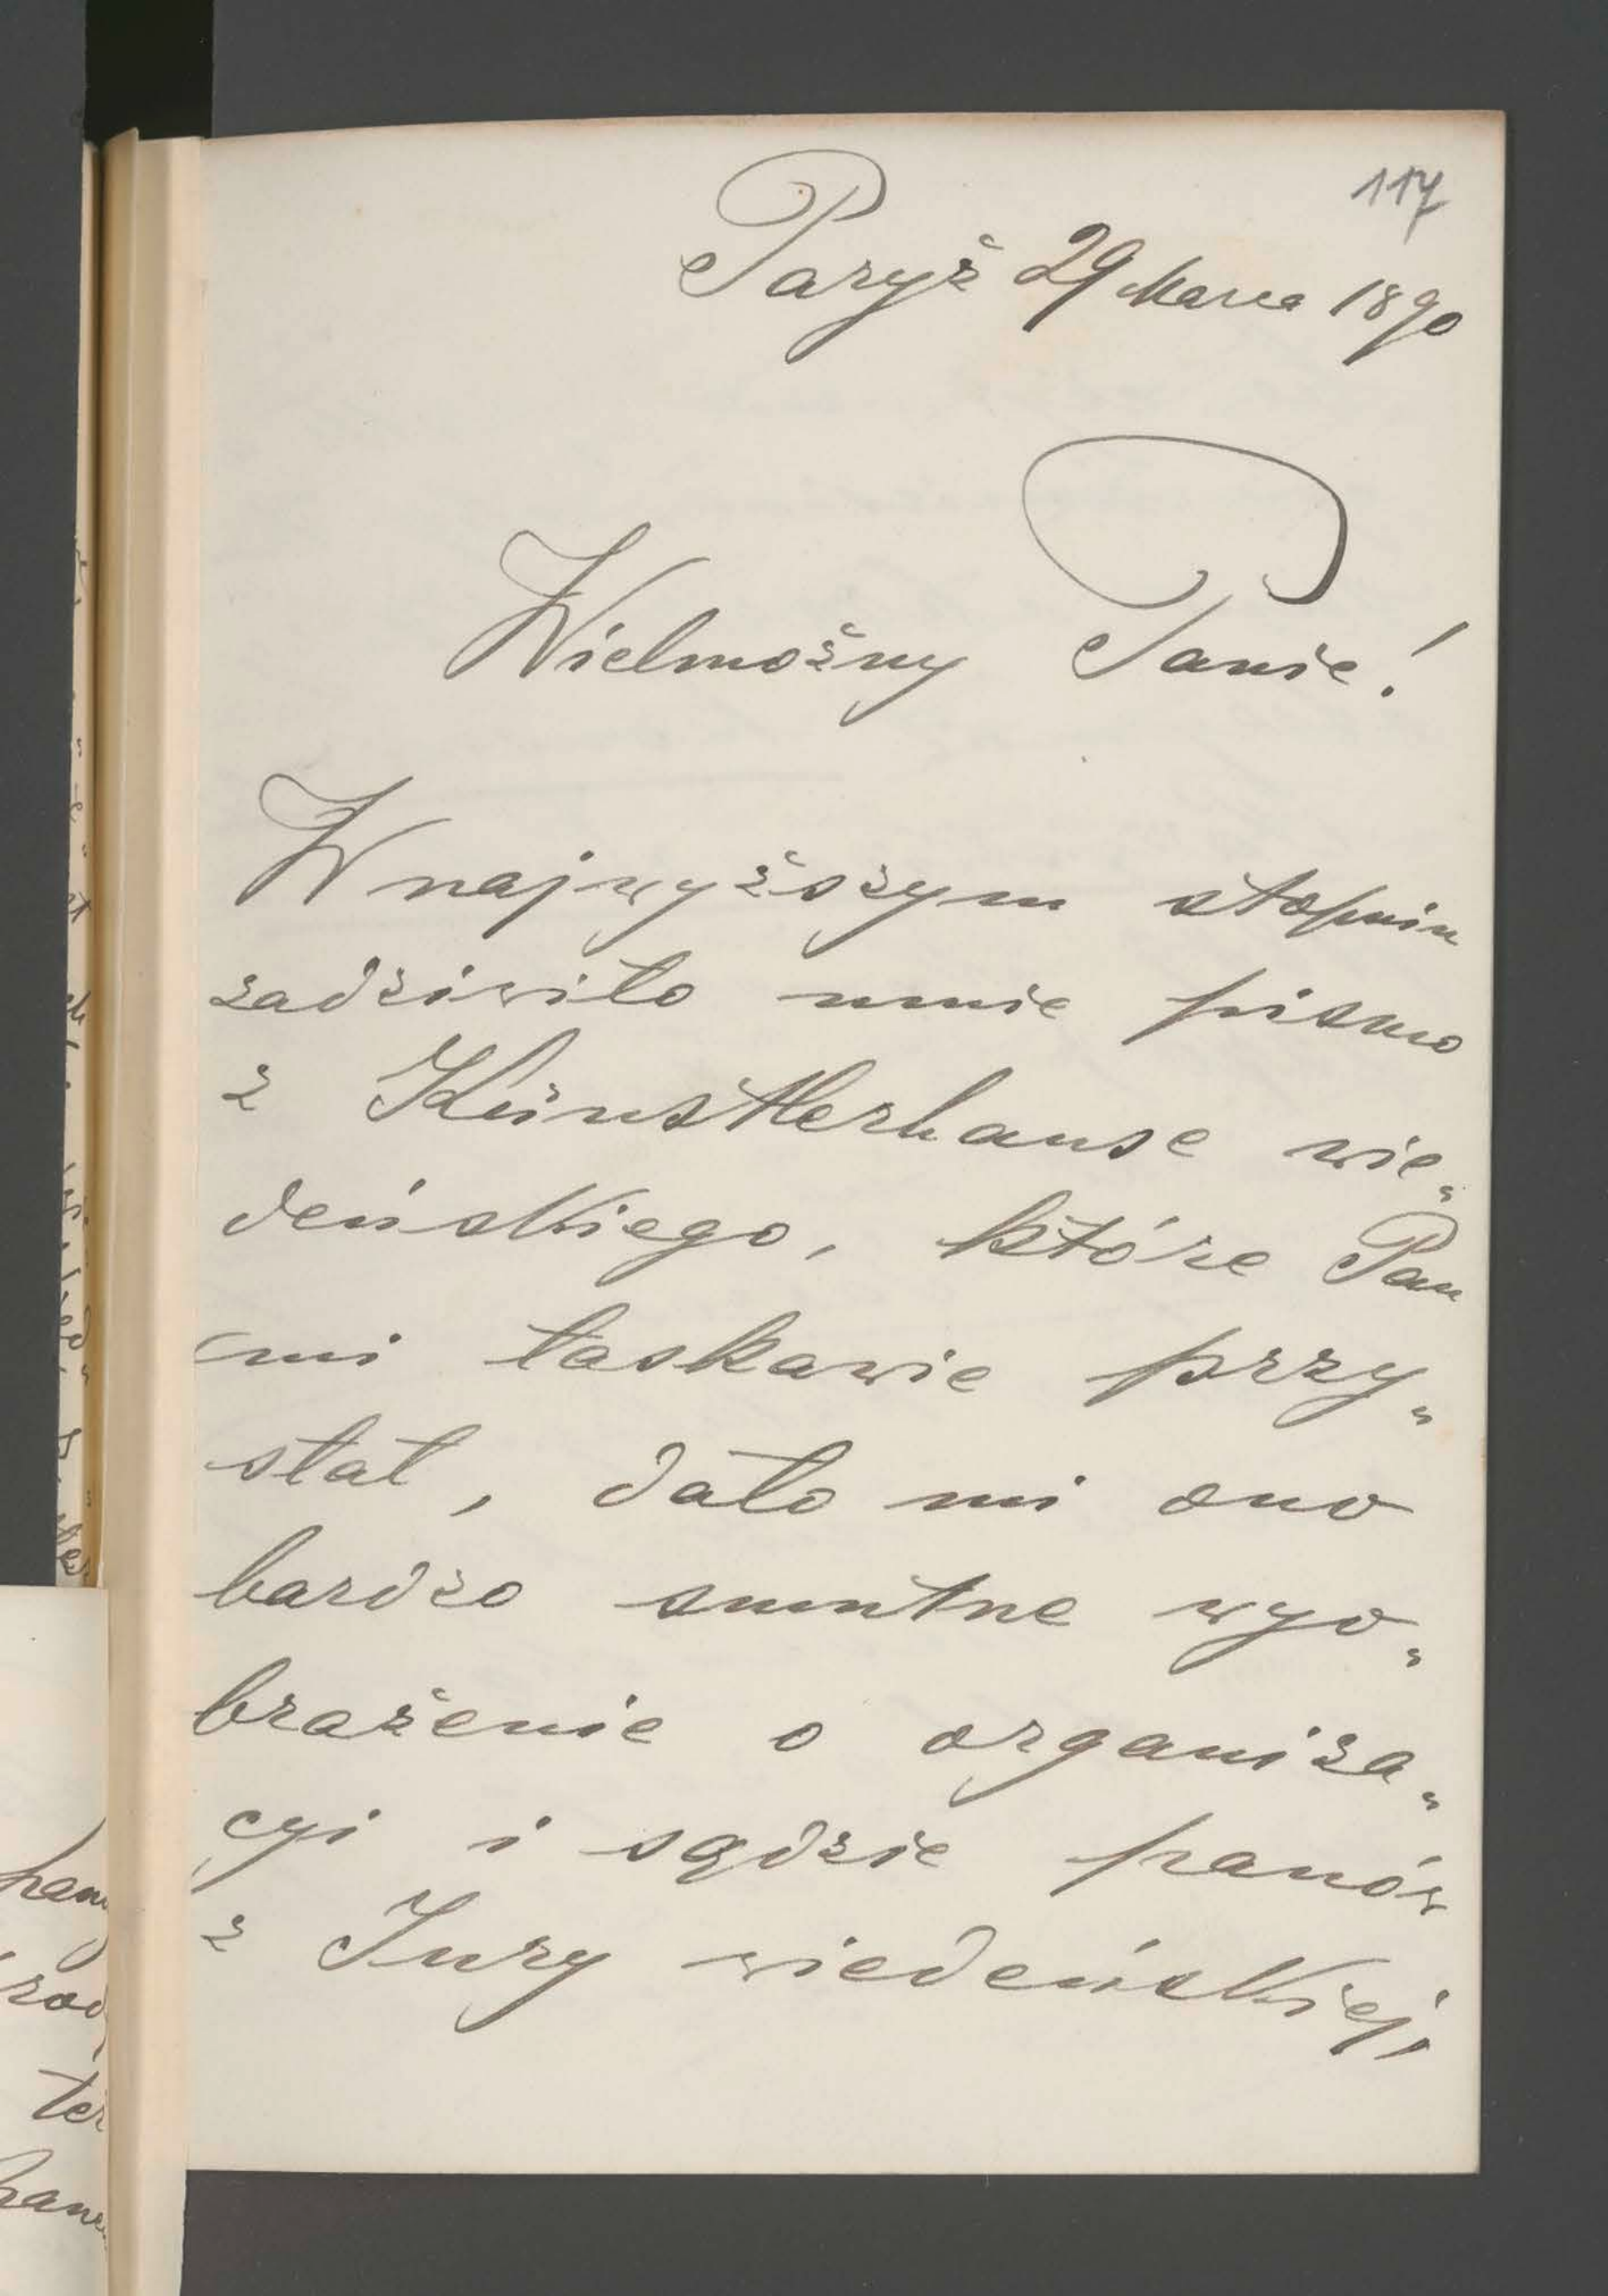 117
Paryż 29 Marca 1890
Wielmożny Panie!
W najwyższym stopniu
zadziwiło mnie pismo
z Künstlerhause wie„
deńskiego, które Pan
mi łaskawie przy„
słał, dało mi ono
bardzo smutne wyo„
brażenie o organiza„
cyi i sądzie panów
z Jury wiedeńskiej,